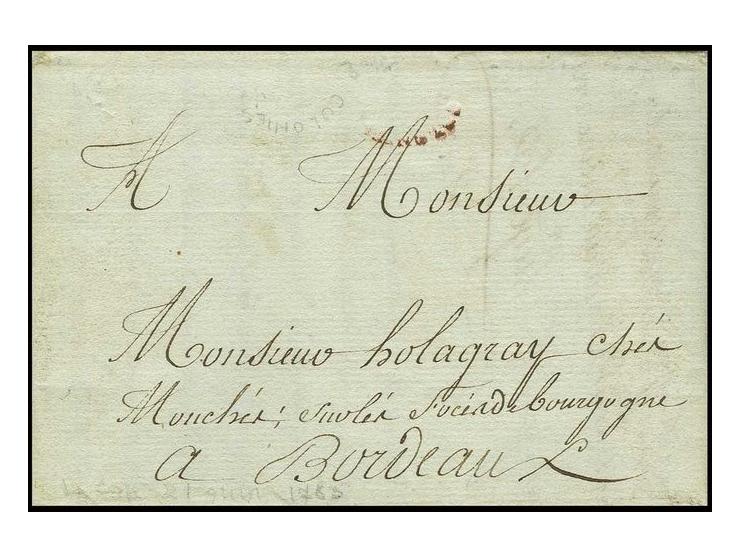 COLONIES
A Monsieur
Monsieur holagray chés
Mouchés; sur lés Focérd bourgogne
a Bordeaux